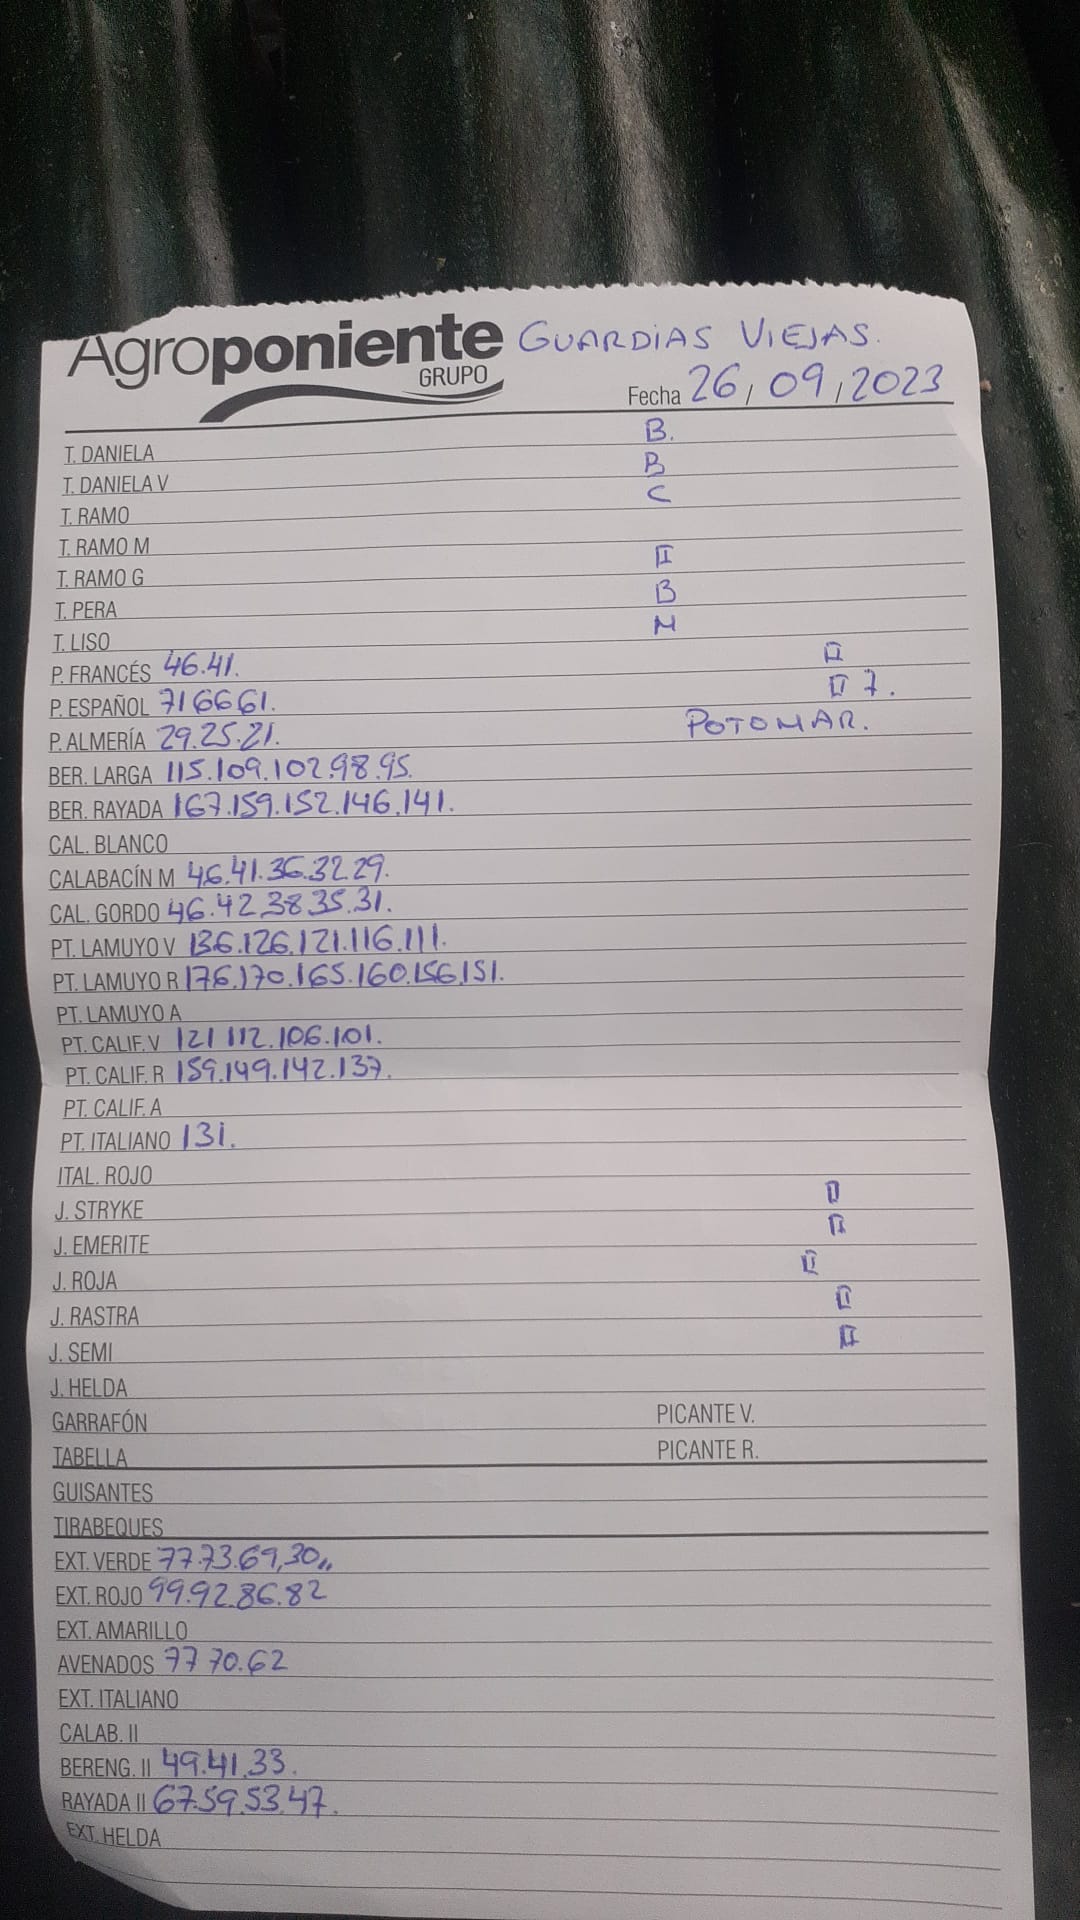 Agroponiente GUARDIAS VIEJAS.
GRUPO
Fecha 26/09/2023
T. DANIELA B.
T. DANIELA V B
T. RAMO C
T. RAMO M
T. RAMO G II
T. PERA B
T. LISO M
P. FRANCÉS 46.41. II
P. ESPAÑOL 716661. II 7.
P. ALMERÍA 29.25.21. POTOMAR.
BER. LARGA 115.109.102.98.95.
BER. RAYADA 167.159.152.146.141.
CAL. BLANCO
CALABACÍN M 46.41.36.32.29.
CAL. GORDO 46.42.38.35.31.
PT. LAMUYO V 136.126.121.116.111.
PT. LAMUYO R 176.170.165.160.156.151.
PT. LAMUYO A
PT. CALIF. V 121 112.106.101.
PT. CALIF. R 159.149.142.137.
PT. CALIF. A
PT. ITALIANO 131.
ITAL. ROJO
J. STRYKE II
J. EMERITE II
J. ROJA II
J. RASTRA II
J. SEMI II
J. HELDA
GARRAFÓN PICANTE V.
TABELLA PICANTE R.
GUISANTES
TIRABEQUES
EXT. VERDE 77.73.69,30,,
EXT. ROJO 99.92.86.82
EXT. AMARILLO
AVENADOS 77 70.62
EXT. ITALIANO
CALAB. II
BERENG. II 49.41.33.
RAYADA II 67.59.53.47.
EXT. HELDA